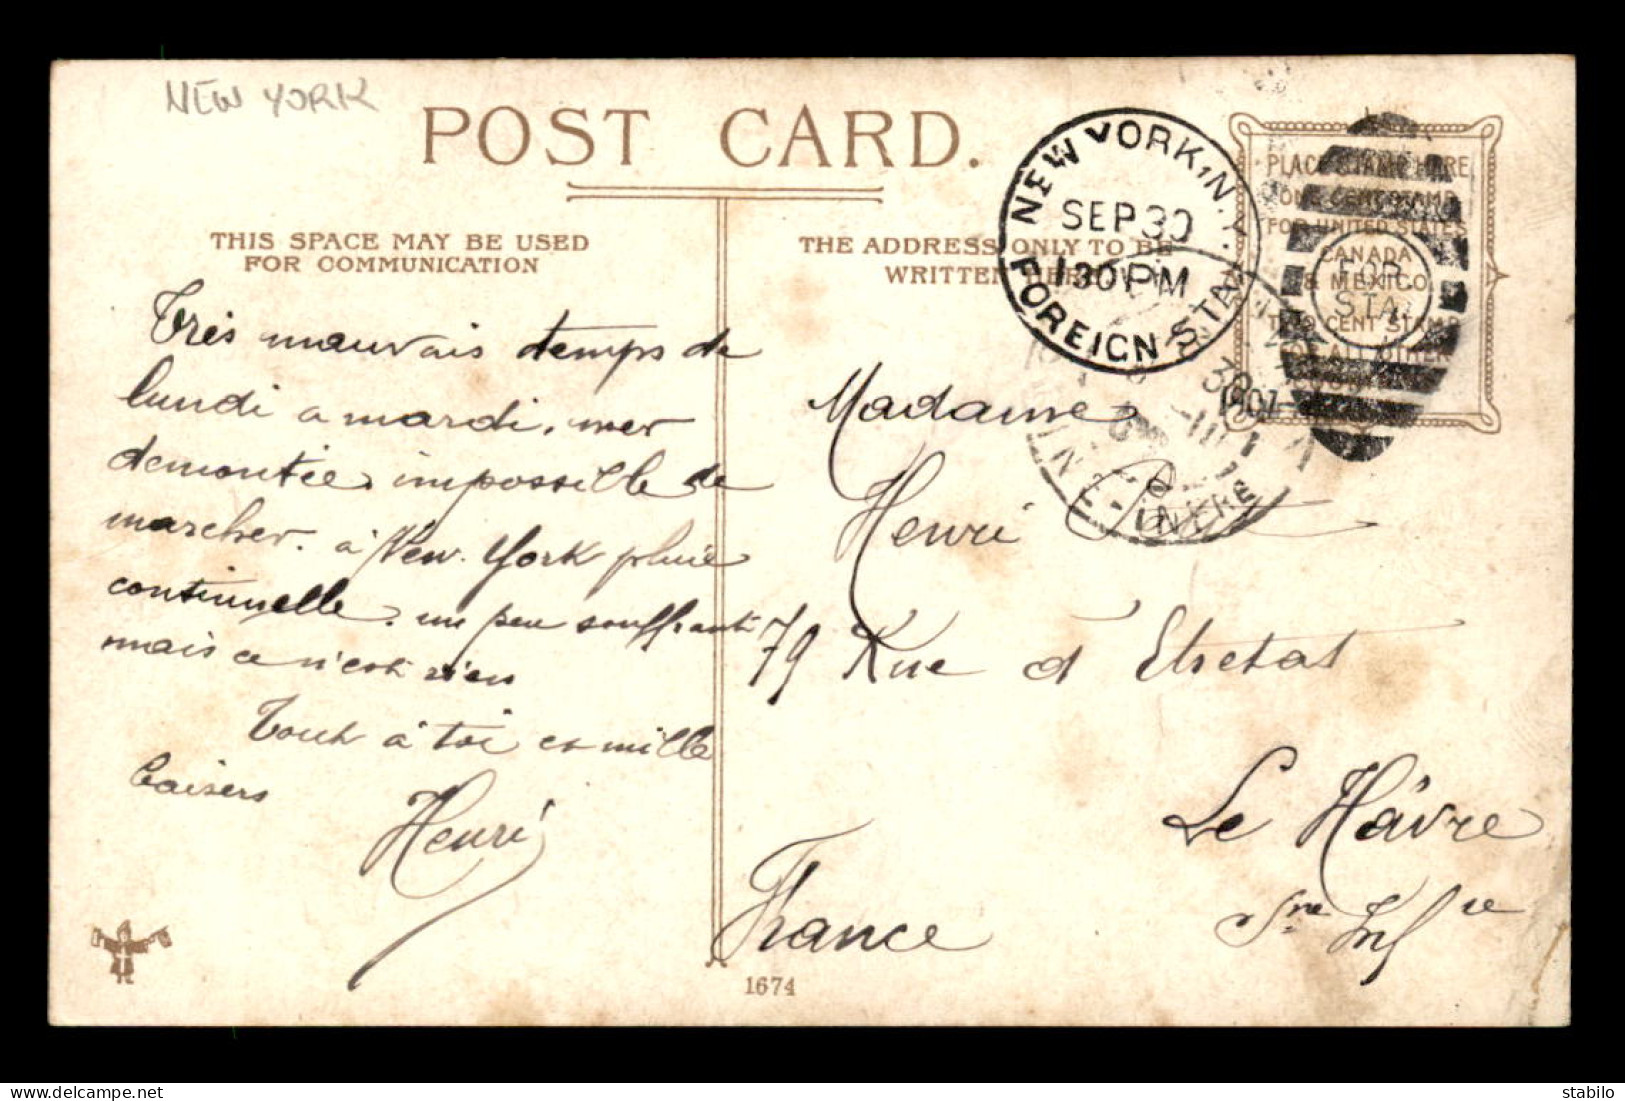 NEW YORK
POST CARD.
THIS SPACE MAY BE USED
FOR COMMUNICATION
THE ADDRESS ONLY TO BE
WRITTEN HERE
PLACE STAMP HERE
ONE CENT STAMP
FOR UNITED STATES
CANADA
& MEXICO
TWO CENT STAMP
FOR ALL OTHER
NEW YORK, N.Y.
SEP 30
1 30 PM
FOREIGN STA.
FOR.
STA.
1907
Très mauvais temps de
lundi a mardi, mer
demontée, impossible de
marcher. à New-York pluie
continuelle. un peu souffrant
mais ce n'est rien
Tout à toi et mille
baisers
Henri
Madame
Henri
79 Rue d'Etretat
Le Hâvre
Sne Infre
France
1674
stabilo